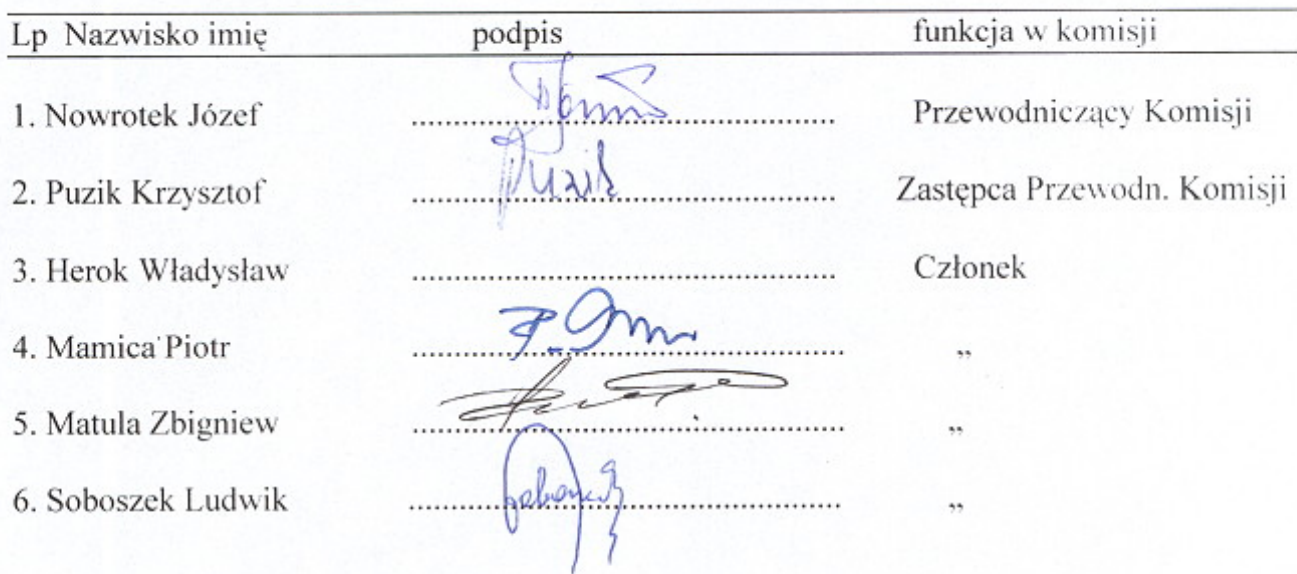 Lp Nazwisko imię podpis funkcja w komisji
1. Nowrotek Józef ........................................ Przewodniczący Komisji
2. Puzik Krzysztof ........Puzik........ Zastępca Przewodn. Komisji
3. Herok Władysław ........................................ Członek
4. Mamica Piotr ........................................ „
5. Matula Zbigniew ........................................ „
6. Soboszek Ludwik ........................................ „